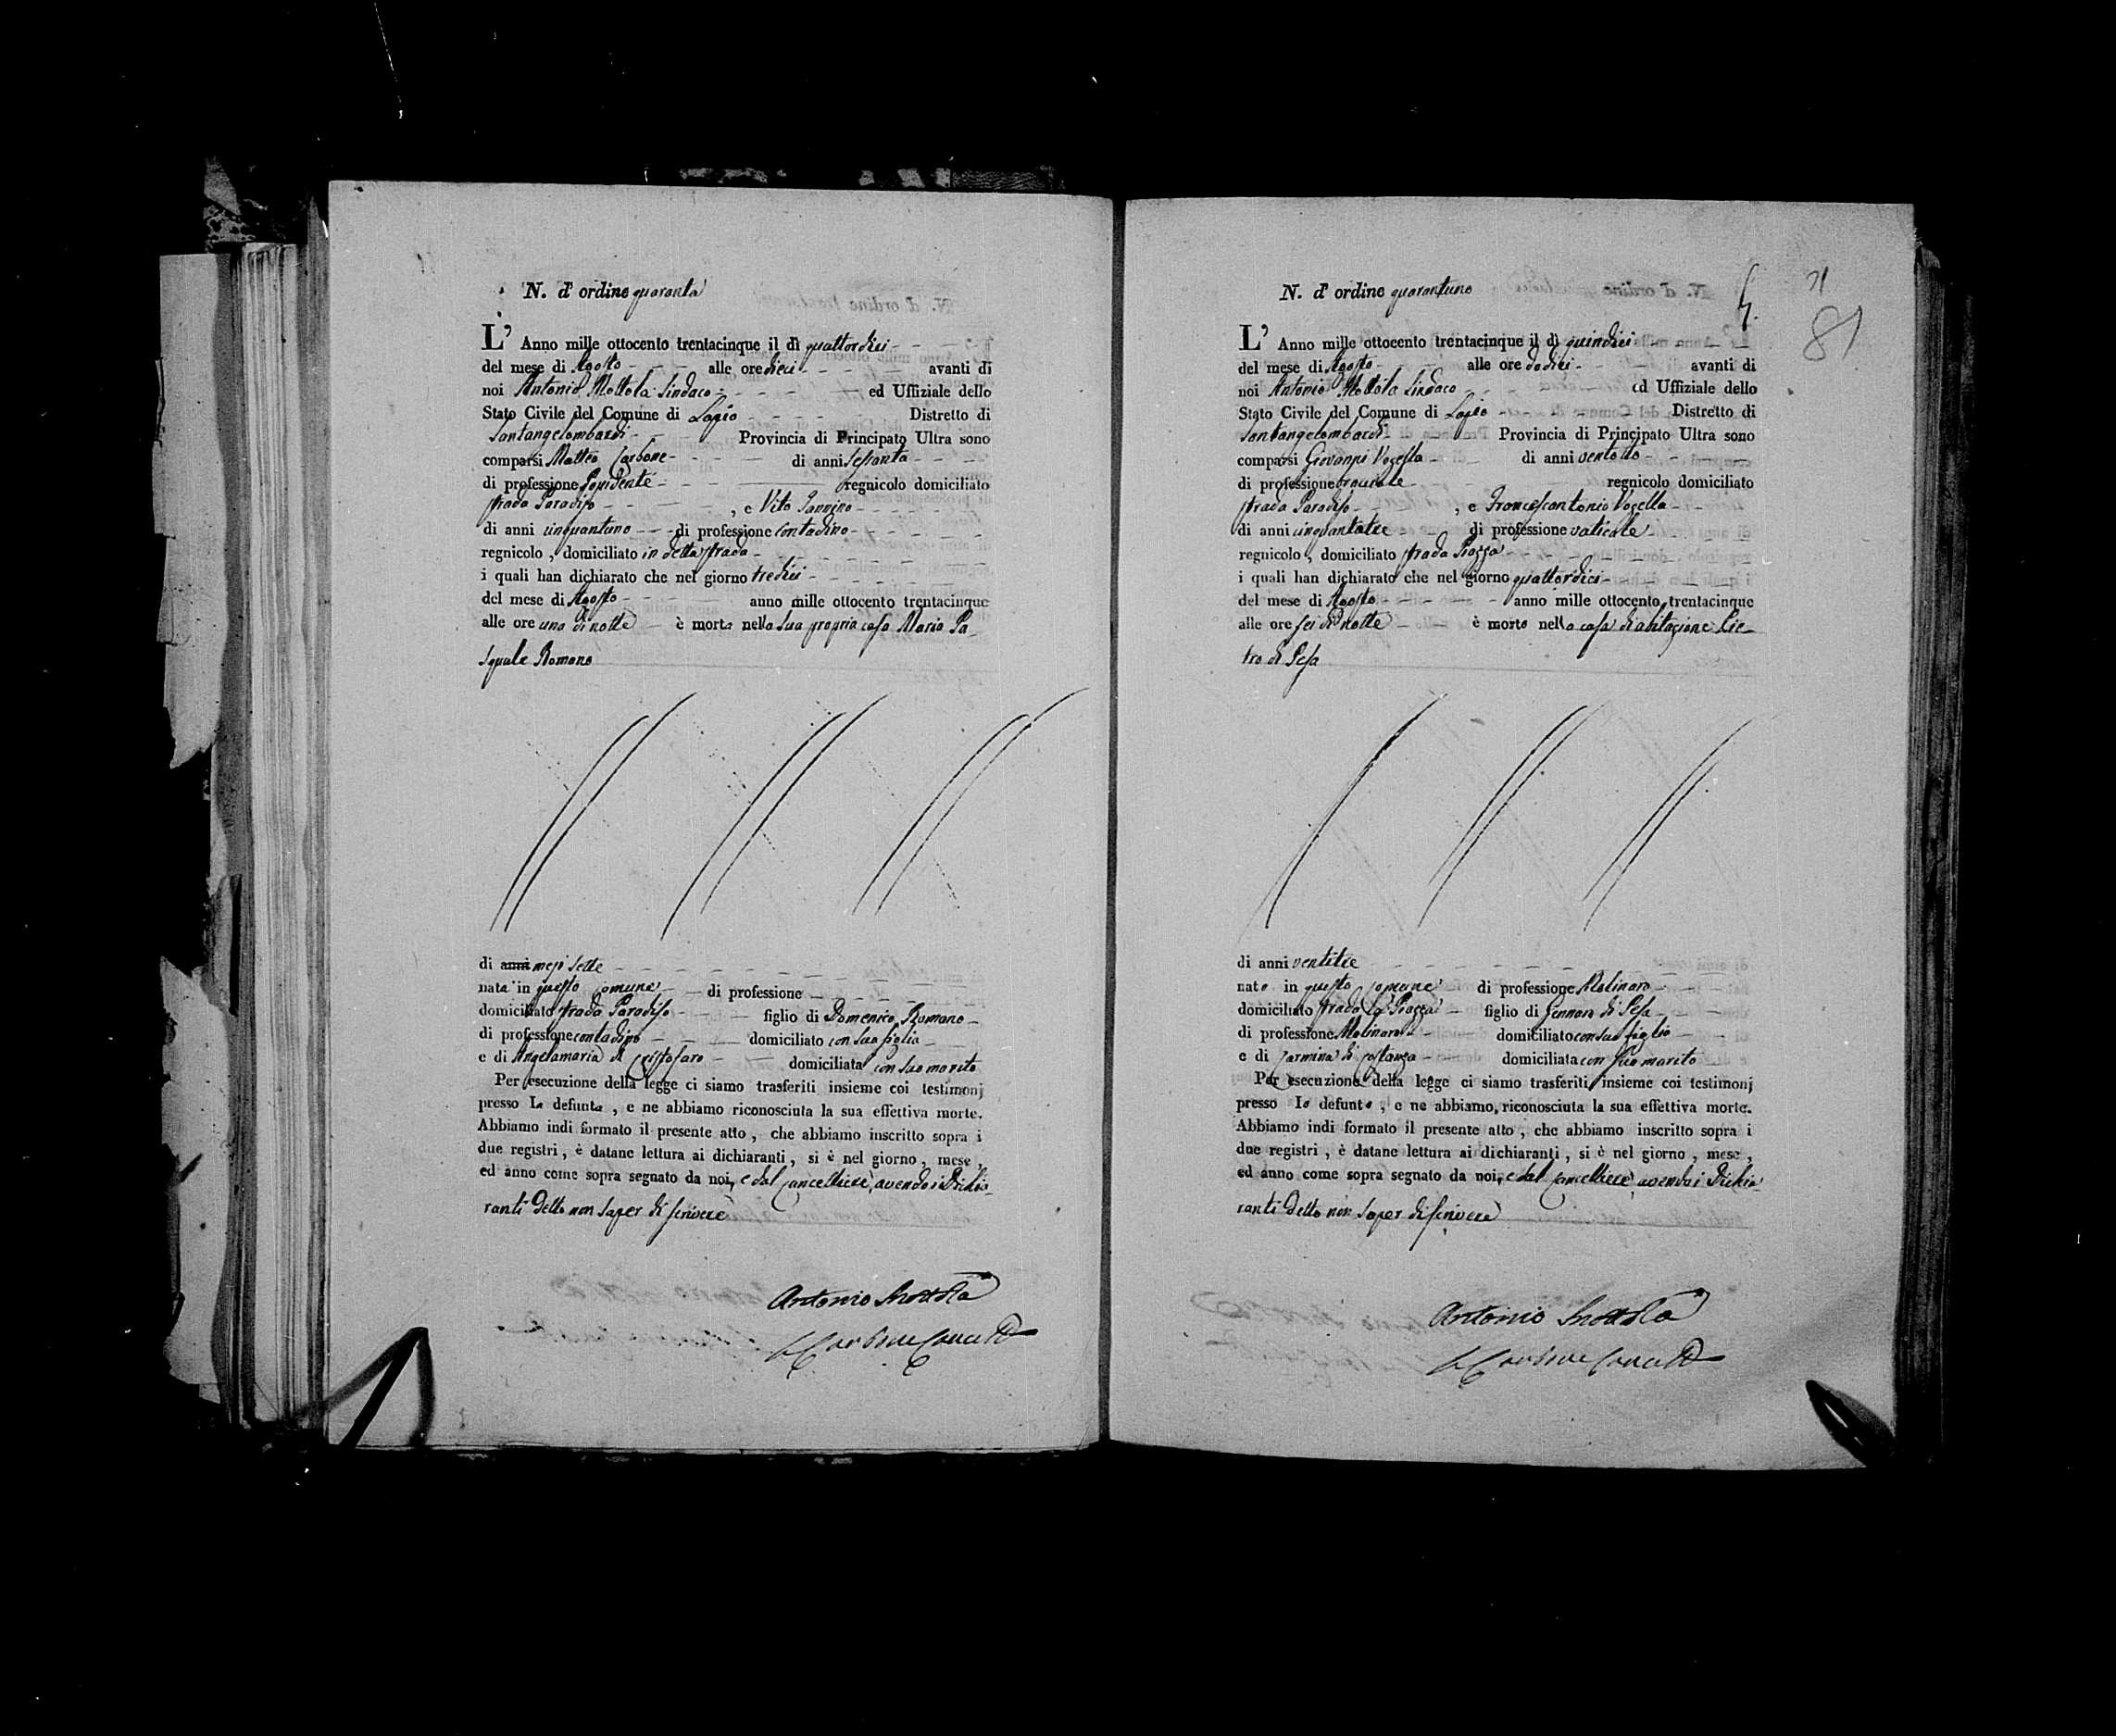 N. d' ordine quaranta
L' Anno mille ottocento trentacinque il dì quattordici
del mese di Agosto alle ore dieci avanti di
noi Antonio Mottola Sindaco ed Uffiziale dello
Stato Civile del Comune di Lapio Distretto di
Santangelombardi Provincia di Principato Ultra sono
comparsi Matteo Carbone di anni sessanta
di professione regnicolo domiciliato
strada Paradiso , e Vito Iannino
di anni cinquantuno di professione contadino
regnicolo , domiciliato in detta strada
i quali han dichiarato che nel giorno tredici
del mese di Agosto anno mille ottocento trentacinque
alle ore una di notte è morta nella sua propria casa Maria Pa-
squale Romano
di anni mesi sette
nata in questo comune di professione
domiciliato strada Paradiso figlio di Domenico Romano
di professione contadino domiciliato con sua figlia
e di Angelamaria di Cristofaro domiciliata con suo marito
Per esecuzione della legge ci siamo trasferiti insieme coi testimonj
presso La defunta , e ne abbiamo riconosciuta la sua effettiva morte.
Abbiamo indi formato il presente atto , che abbiamo inscritto sopra i
due registri , è datane lettura ai dichiaranti , si è nel giorno , mese ,
ed anno come sopra segnato da noi, e dal cancelliere, avendo i Dichia-
ranti detto non saper di scrivere
Antonio Mottola
Carbone Cancell
N. d' ordine quarantuno
71
81
L' Anno mille ottocento trentacinque il dì quindici
del mese di Agosto alle ore dodici avanti di
noi Antonio Mottola Sindaco ed Uffiziale dello
Stato Civile del Comune di Lapio Distretto di
Santangelombardi Provincia di Principato Ultra sono
comparsi Giovanni Vocella di anni ventotto
di professione regnicolo domiciliato
strada Paradiso , e Francescantonio Vocella
di anni cinquantatre di professione vaticale
regnicolo , domiciliato strada Piazza
i quali han dichiarato che nel giorno quattordici
del mese di Agosto anno mille ottocento trentacinque
alle ore sei di notte è morto nella casa di abitazione Pie-
tro di Pesa
di anni ventitre
nato in questo comune di professione Molinaro
domiciliato strada La Piazza figlio di Gennaro di Pesa
di professione Molinaro domiciliato con suo figlio
e di Carmina di Costanza domiciliata con suo marito
Per esecuzione della legge ci siamo trasferiti insieme coi testimonj
presso lo defunto , e ne abbiamo riconosciuta la sua effettiva morte.
Abbiamo indi formato il presente atto , che abbiamo inscritto sopra i
due registri , è datane lettura ai dichiaranti , si è nel giorno , mese ,
ed anno come sopra segnato da noi, e dal cancelliere avendo i Dichia-
ranti detto non saper di scrivere
Antonio Mottola
Carbone Cancell